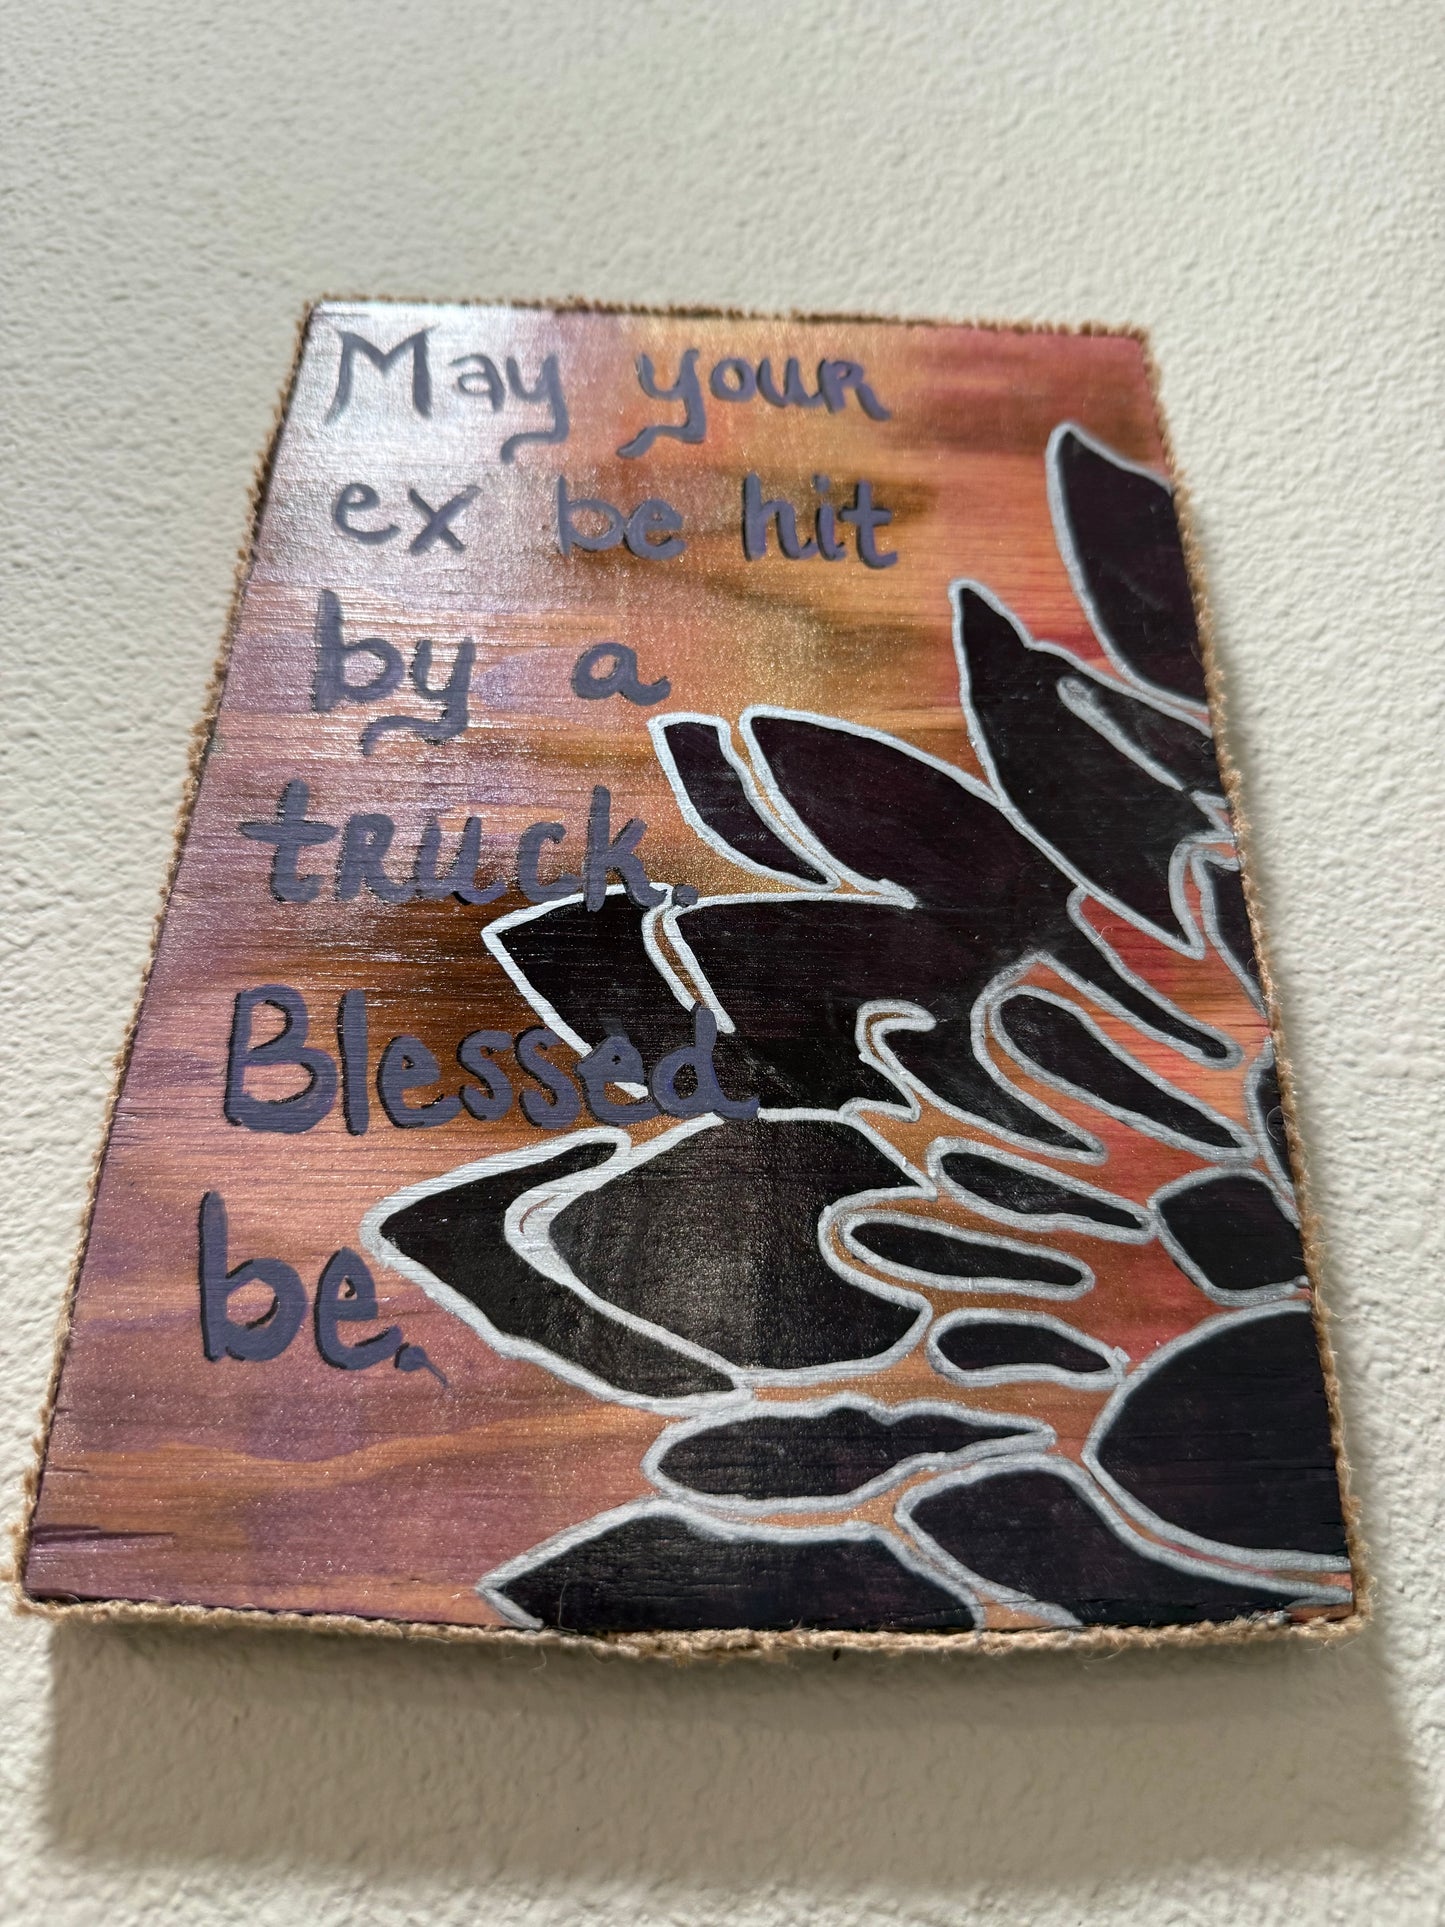 May your
ex be hit
by a
truck.
Blessed
be.